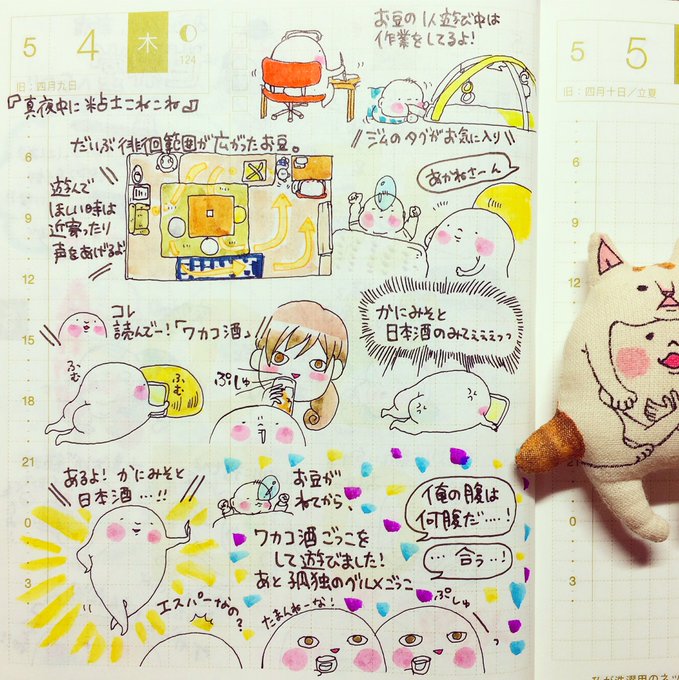 5
4
木
124
旧：四月九日
『真夜中に粘土こねこね』
お豆の1人遊び中は
作業をしてるよ！
ジムのタグがお気に入り
だいぶ徘徊範囲が広がったお豆。
遊んで
ほしい時は
近寄ったり
声をあげるよ
あかねさーん
コレ
読んでー！「ワカコ酒」
ふむ
ふむ
ぷしゅ
かにみそと
日本酒のみてぇぇぇっっ
あるよ！かにみそと
日本酒…!!
エスパーなの？
お豆が
ねてから、
ワカコ酒ごっこを
して遊びました！
あと孤独のグルメごっこ
俺の腹は
何腹だ…！
…合う…！
たまんねーな！
ぷしゅー
6
9
12
15
18
21
0
3
5
5
旧：四月十日／立夏
6
9
12
15
0
3